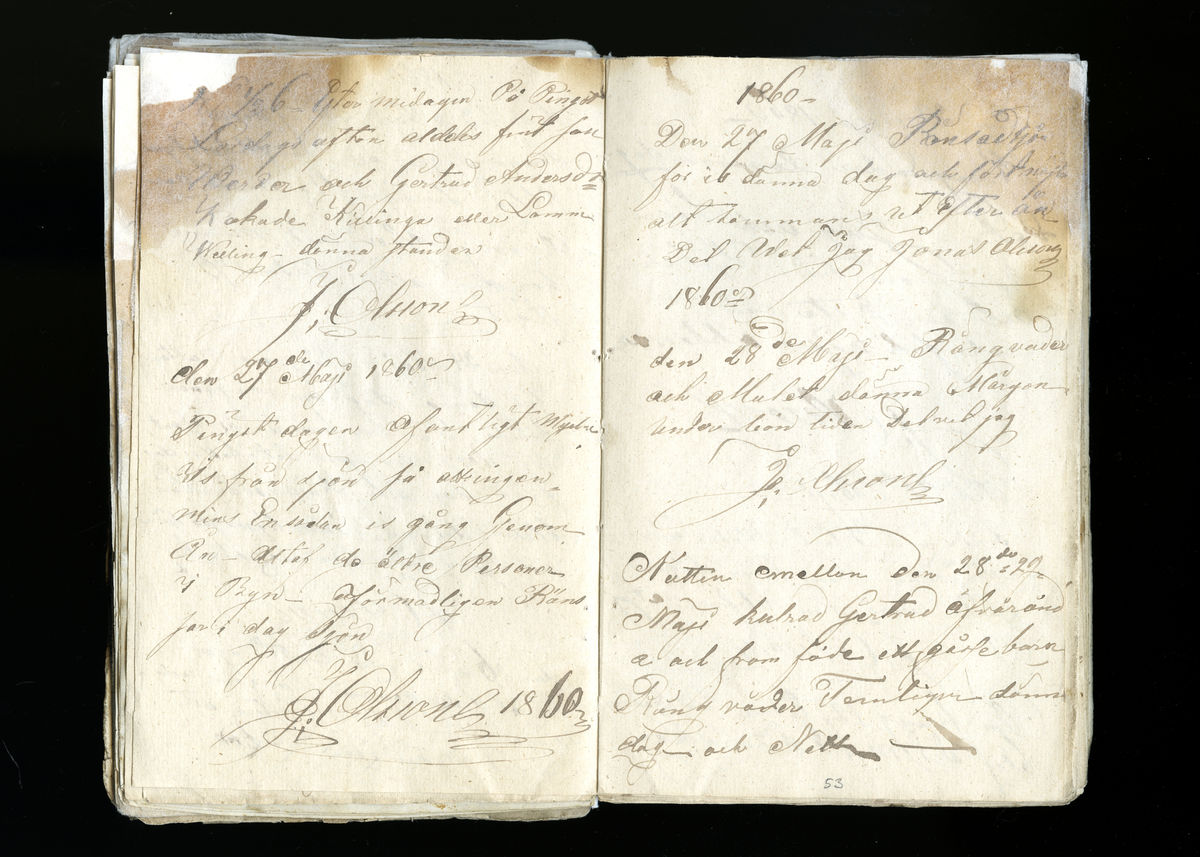 Kl 1/2 6 Efter midagen På Pingst
Lördags afton aldeles fint
och Gertrud Anderson
Kokade Killinga eller Lamm
Killing denna stunden
J. Olsson
den 27de Maji 1860
Pingst dagen
Is från sjön så att ingen
mins En sådan is gång Genom
Ån - att af de äldre Personer
i Byn - förmodligen Räns
jar i dag Sjön
J. Olsson 1860
1860
Den 27 Maji Rensas sjö
för is denna dag och
alt tommans ut efter ån
Det Vet Jag Jonas Olsson
1860
den 28de Maji - Rängväder
och Mulet denna Mårgon
under tiden Det vet jag
J. Olsson
Nattin emellon den 28de = 29
Maji kulrad Gertrud
a och from föde ett gåsse barn
Räng väder Temligen denna
dag och Natt
53